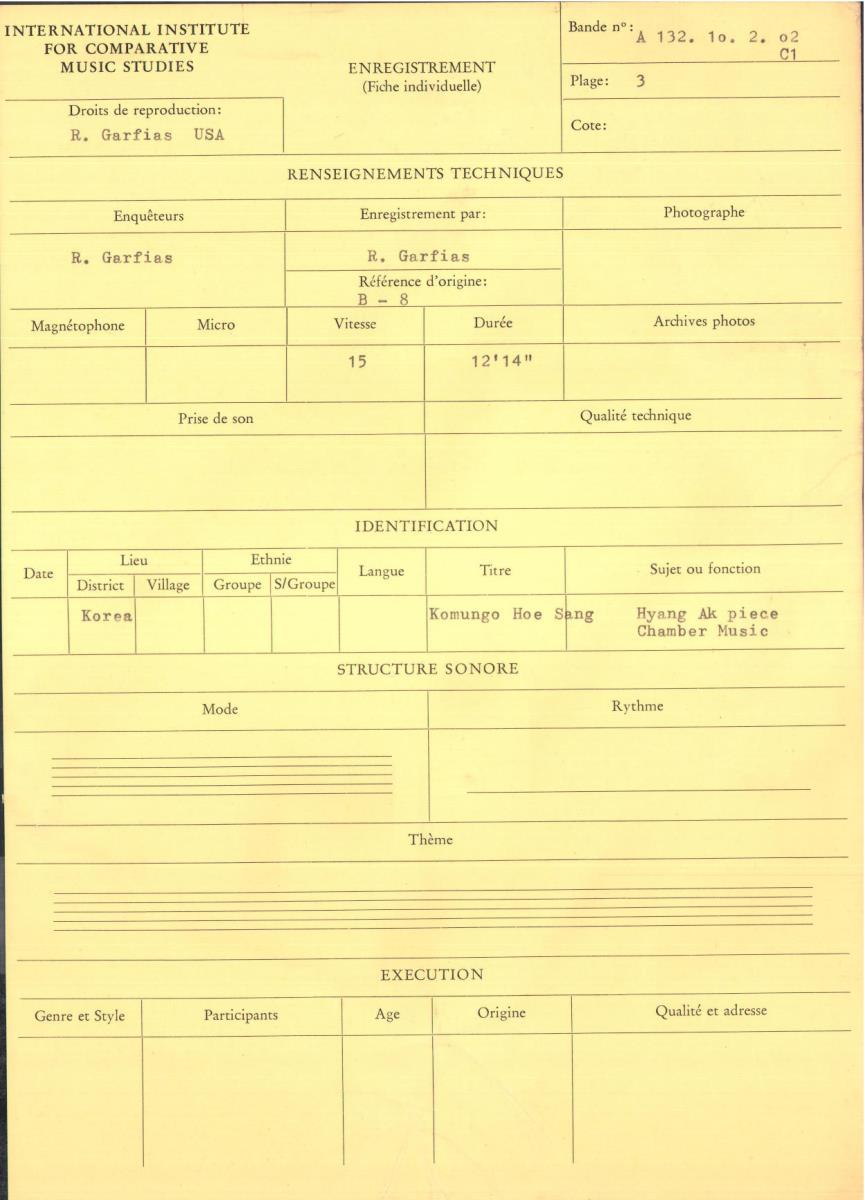 INTERNATIONAL INSTITUTE
FOR COMPARATIVE
MUSIC STUDIES
Droits de reproduction:
R. Garfias USA
ENREGISTREMENT
(Fiche individuelle)
Bande nº: A 132. 1o. 2. o2
C1
Plage: 3
Cote:
RENSEIGNEMENTS TECHNIQUES
Enquêteurs
R. Garfias
Enregistrement par:
R. Garfias
Référence d'origine:
B - 8
Photographe
Magnétophone
Micro
Vitesse
15
Durée
12'14"
Archives photos
Prise de son
Qualité technique
IDENTIFICATION
Date
Lieu
District Village
Korea
Ethnie
Groupe S/Groupe
Langue
Titre
Komungo Hoe Sang
Sujet ou fonction
Hyang Ak piece
Chamber Music
STRUCTURE SONORE
Mode
Rythme
Thème
EXECUTION
Genre et Style
Participants
Age
Origine
Qualité et adresse